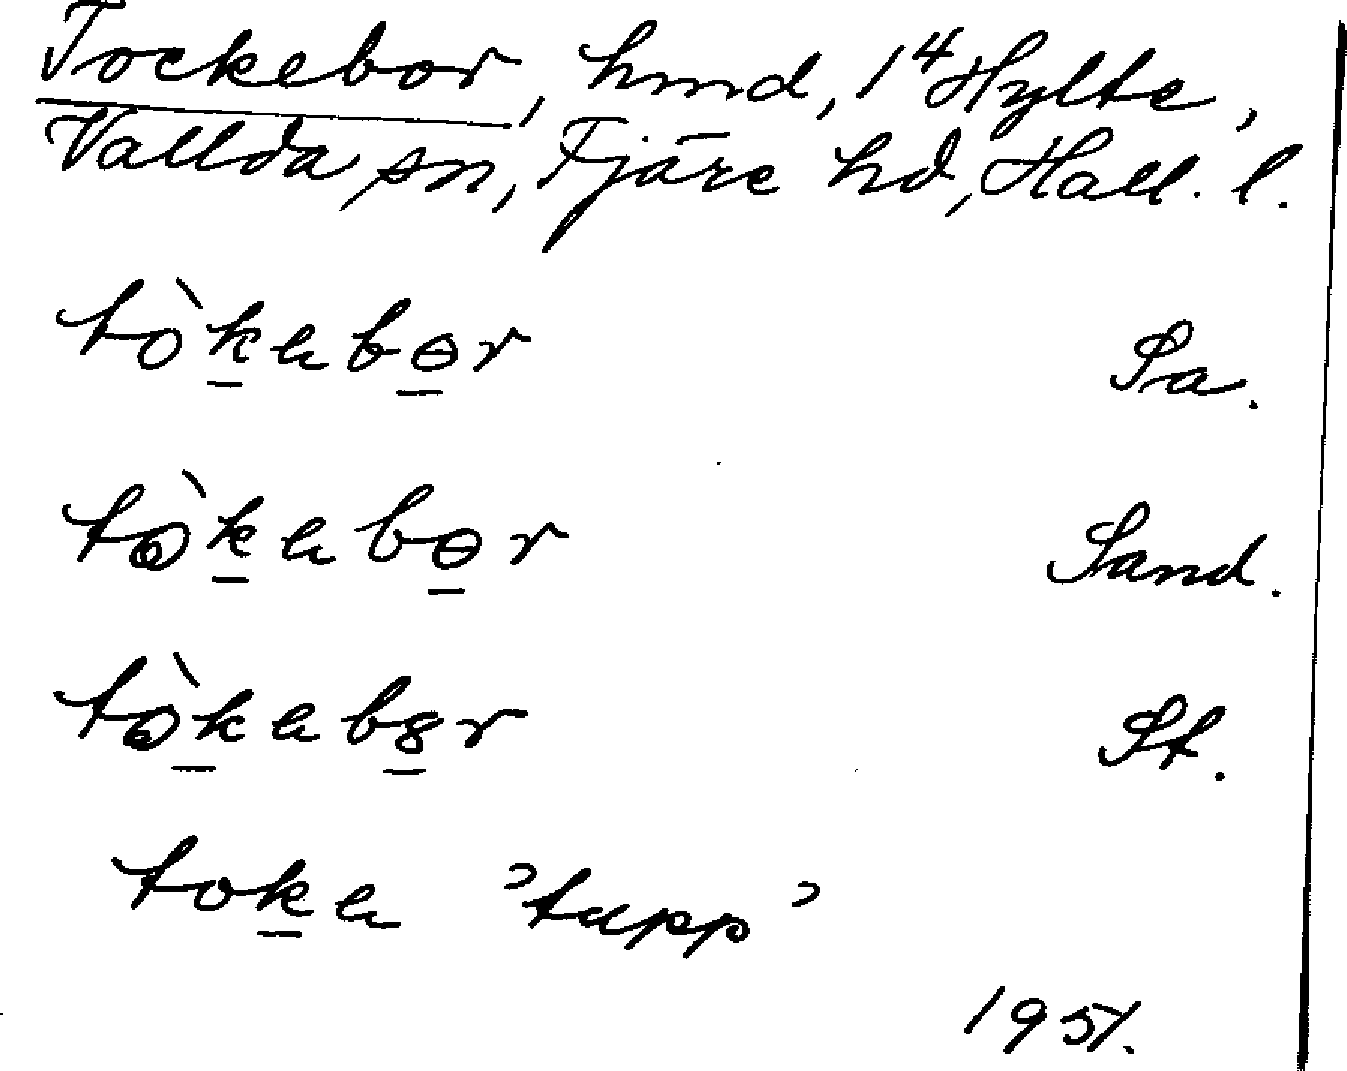 Tockebor, hmd, 1⁴ Hylte,
Vallda sn, Fjäre hd, Hall. l.
tòk̲ebɵ̲r Sa.
tòk̲ebɵ̲r Sand.
tòk̲eb8̲r St.
tok̲e 'tupp'
1951.